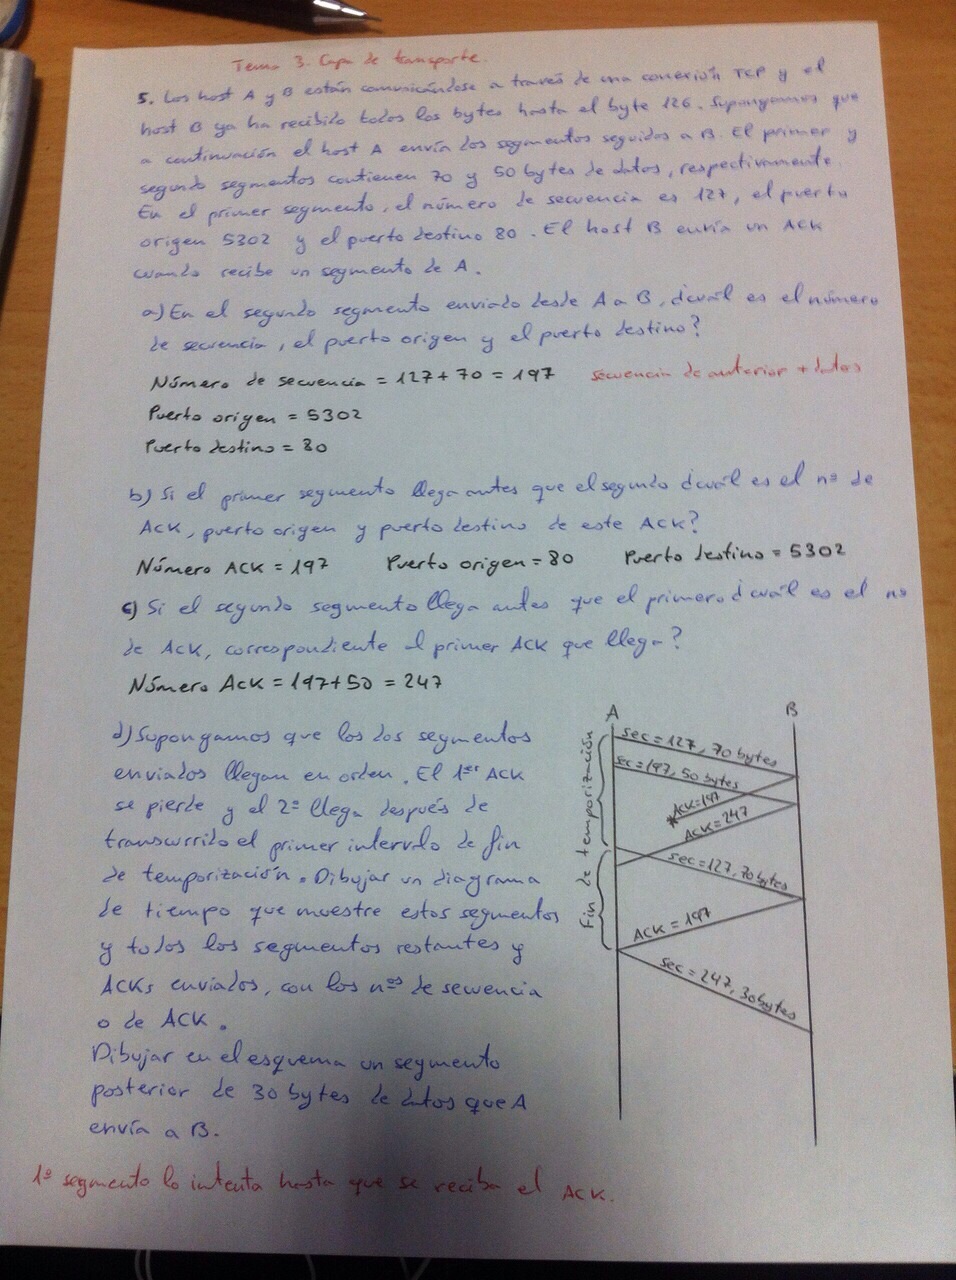 Tema 3. Capa de transporte.
5. Los host A y B están comunicándose a través de una conexión TCP y el
host B ya ha recibido todos los bytes hasta el byte 126. Supongamos que
a continuación el host A envía dos segmentos seguidos a B. El primer y
segundo segmentos contienen 70 y 50 bytes de datos, respectivamente.
En el primer segmento, el número de secuencia es 127, el puerto
origen 5302 y el puerto destino 80. El host B envía un ACK
cuando recibe un segmento de A.
a) En el segundo segmento enviado desde A a B, ¿cuál es el número
de secuencia, el puerto origen y el puerto destino?
Número de secuencia = 127 + 70 = 197 secuencia de anterior + datos
Puerto origen = 5302
Puerto destino = 80
b) Si el primer segmento llega antes que el segundo ¿cuál es el nº de
ACK, puerto origen y puerto destino de este ACK?
Número ACK = 197 Puerto origen = 80 Puerto destino = 5302
c) Si el segundo segmento llega antes que el primero ¿cuál es el nº
de ACK, correspondiente al primer ACK que llega?
Número ACK = 197 + 50 = 247
d) Supongamos que los dos segmentos
enviados llegan en orden. El 1er ACK
se pierde y el 2º llega después de
transcurrido el primer intervalo de fin
de temporización. Dibujar un diagrama
de tiempo que muestre estos segmentos
y todos los segmentos restantes y
ACKs enviados, con los nos de secuencia
o de ACK.
Dibujar en el esquema un segmento
posterior de 30 bytes de datos que A
envía a B.
A B
Fin de temporización
sec = 127, 70 bytes
sec = 197, 50 bytes
ACK = 197
ACK = 247
sec = 127, 70 bytes
ACK = 197
sec = 247, 30 bytes
1º segmento lo intenta hasta que se reciba el ACK.